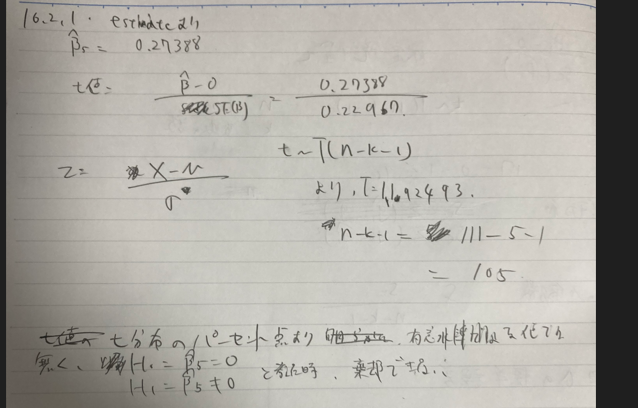 16.2.1. estimate より
β̂5 = 0.27388
t値 = β̂-0 / SE(β) = 0.27388 / 0.22967.
t ~ T(n-k-1)
Z = X-μ / σ
より, T=1.192493.
n-k-1 = 111-5-1
= 105
t分布のパーセント点より 有意水準
無く、 H1 = β̂5=0
H1 = β̂5≠0 と 時、棄却できない